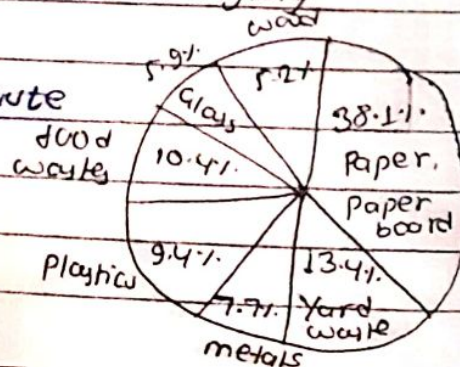 wood
5.9%
5.2%
Glass
38.1%
food
wastes
10.4%
Paper,
Paper
board
9.4%
13.4%
Plastics
7.7%
Yard
waste
metals